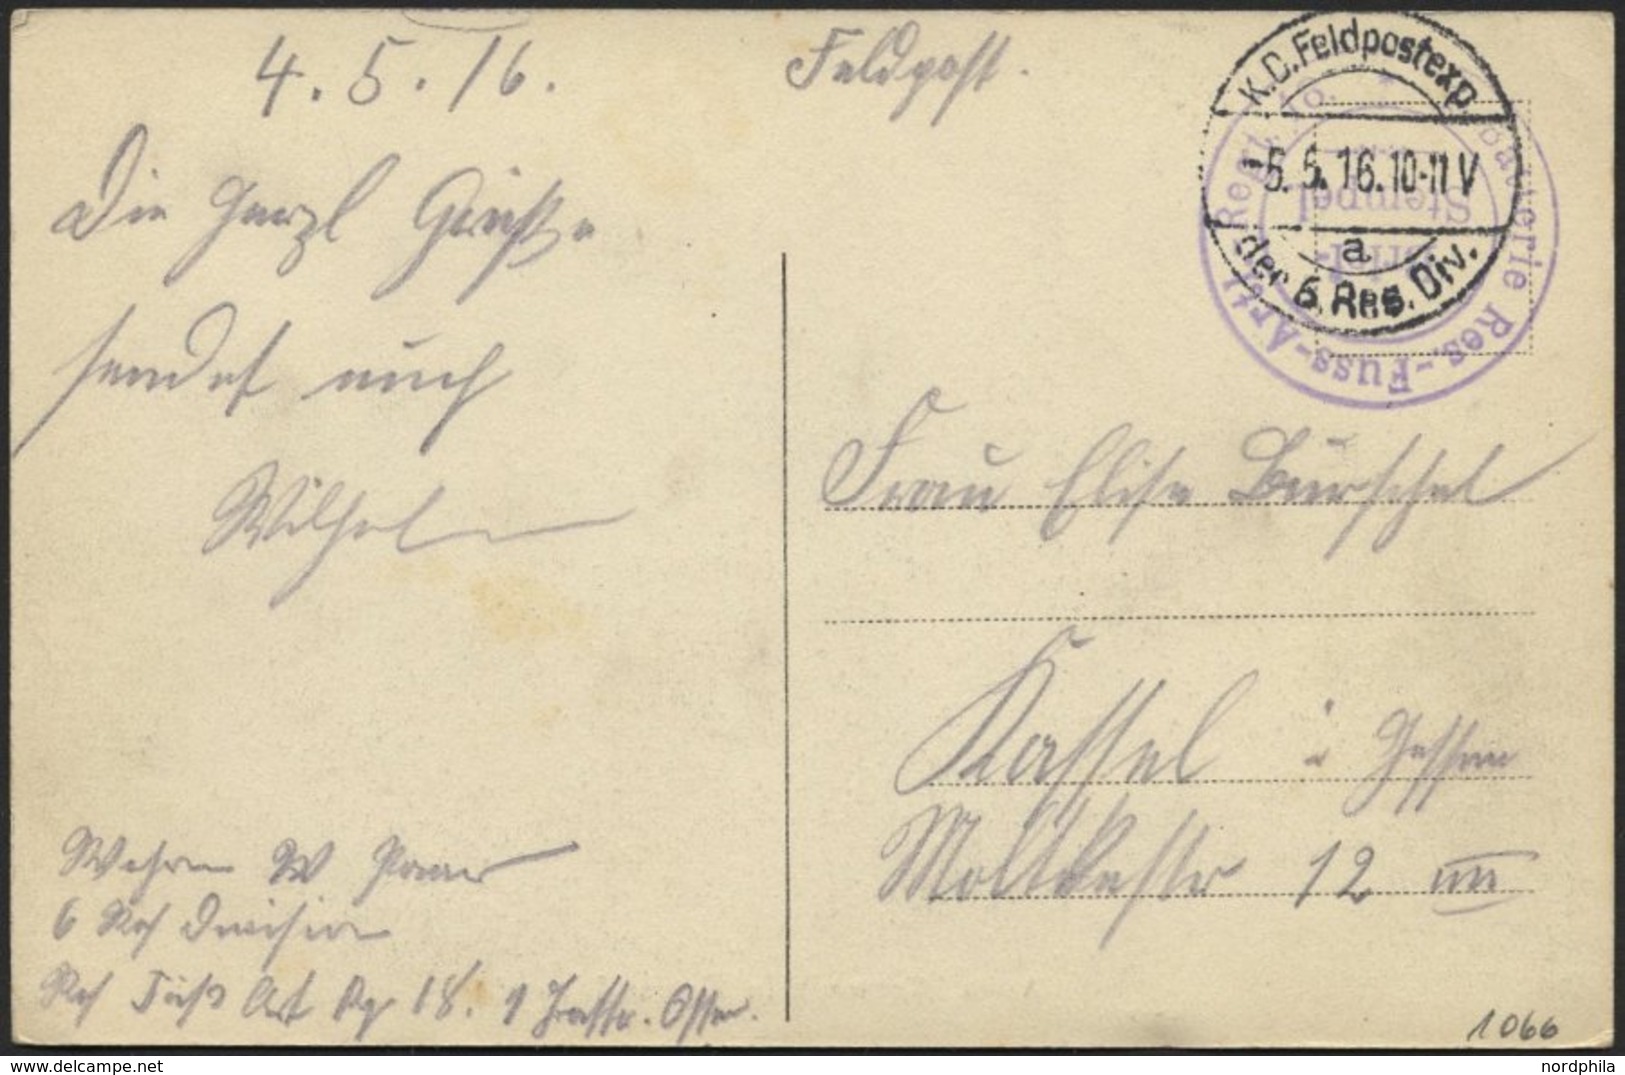 4.5.16.
Feldpost.
Die herzl Grüße
sendet euch
Wilhelm
K.D.Feldpostexp
-5.5.16.10-11V
a
der 6.Res.Div.
Batterie Res.-Fuss-Artl. Regt. No.
Stempel
Frau Elise Burschel
Kassel i Hessen
Moltkestr 12 III
W
6 Res Division
Res Fuß Art Rg 18.
1066
nordphila